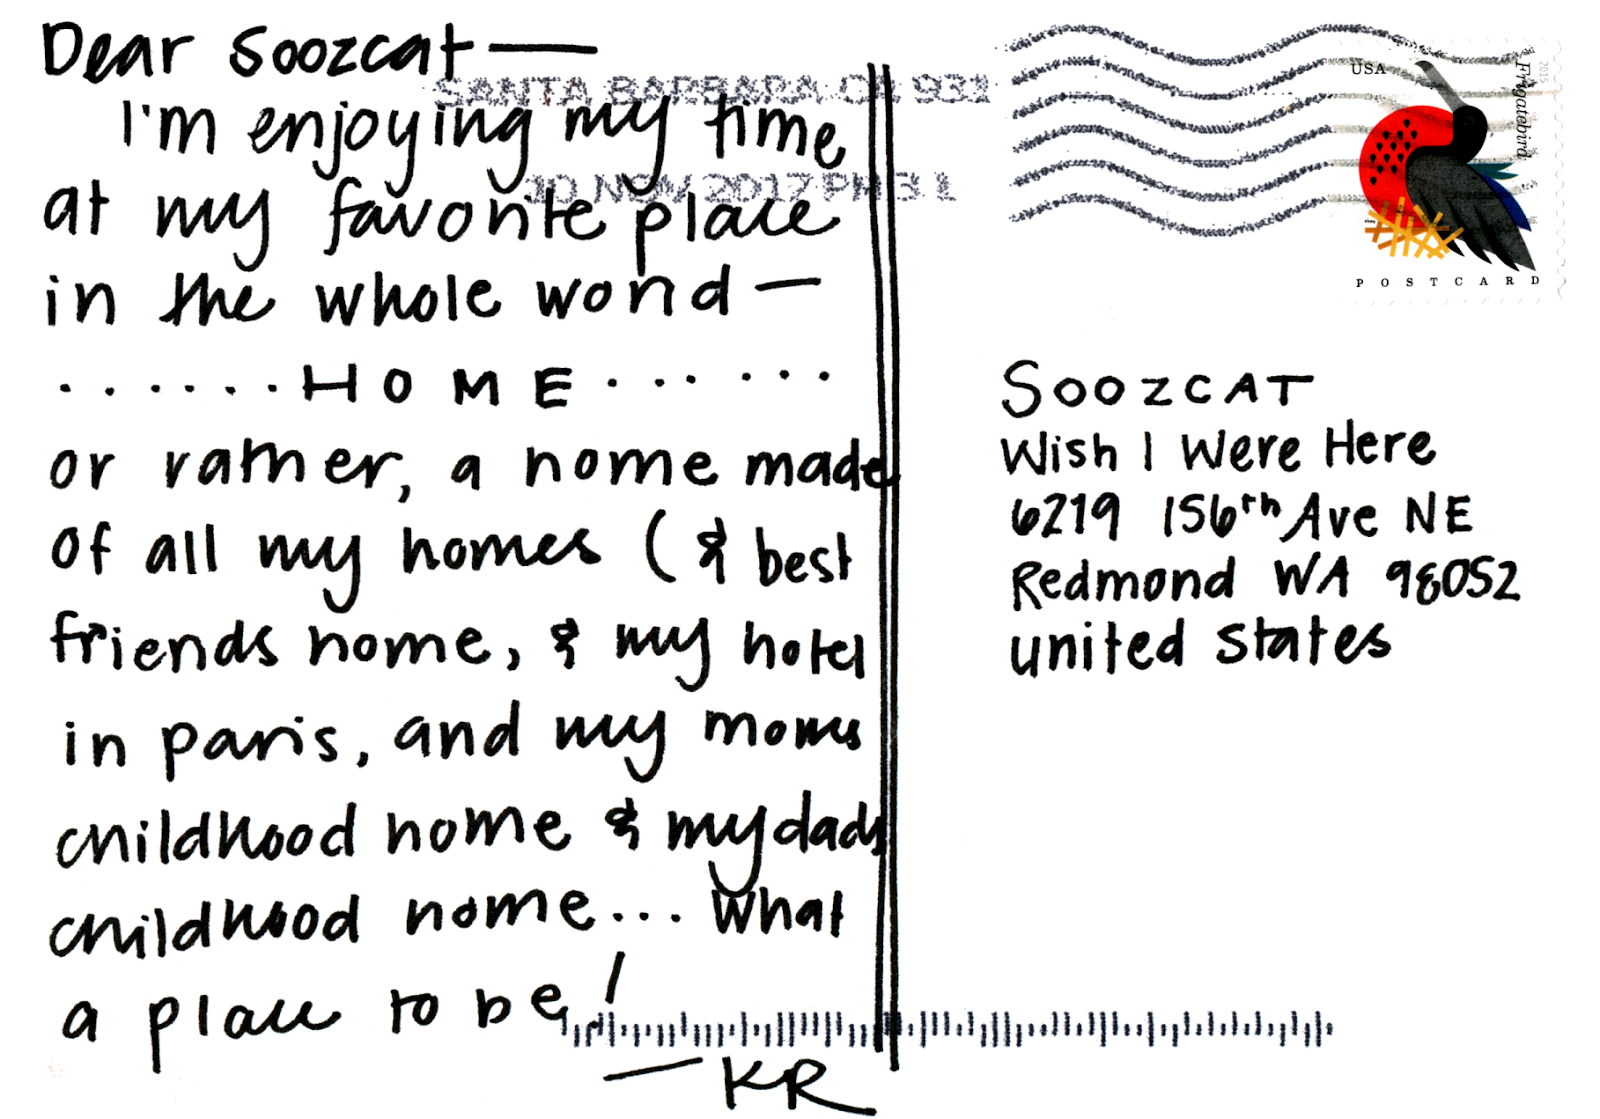 Dear Soozcat —
I'm enjoying my time
at my favorite place
in the whole world —
......HOME......
or rather, a home made
of all my homes (& best
friends home, & my hotel
in paris, and my moms
childhood home & my dads
childhood home... What
a place to be!
— KR
SANTA BARBARA CA 931
10 NOV 2017 PM 3 L
USA
Frigatebird
2015
POSTCARD
SOOZCAT
Wish I Were Here
6219 156th Ave NE
Redmond WA 98052
united states